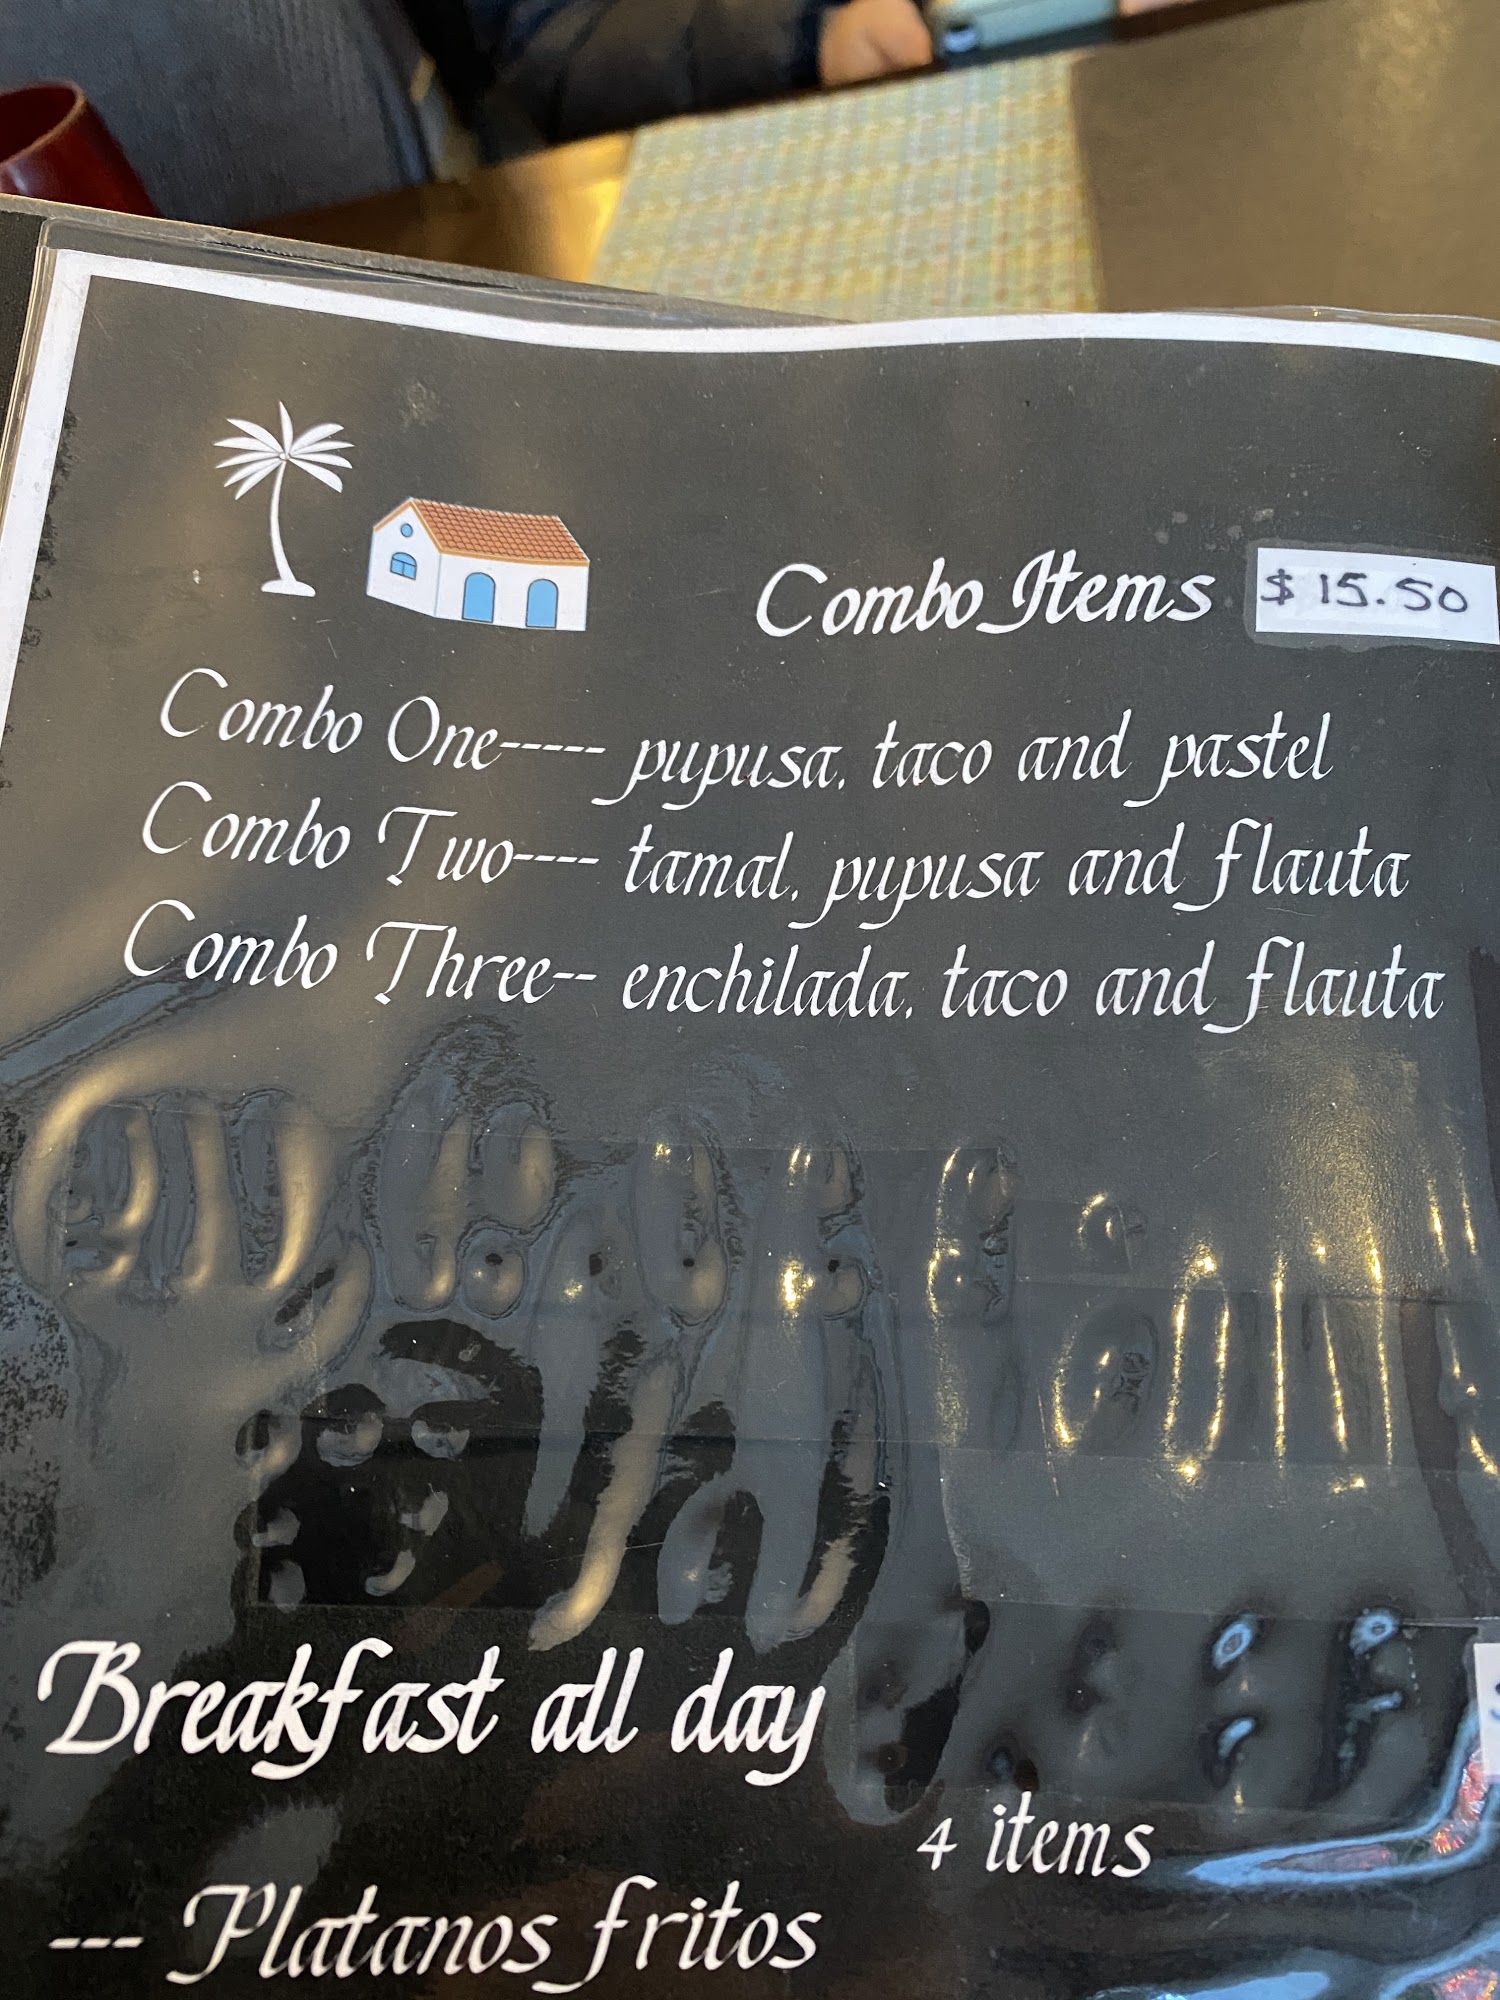 Combo Items $15.50
Combo One----- pupusa, taco and pastel
Combo Two---- tamal, pupusa and flauta
Combo Three-- enchilada, taco and flauta
Breakfast all day
4 items
--- Platanos fritos